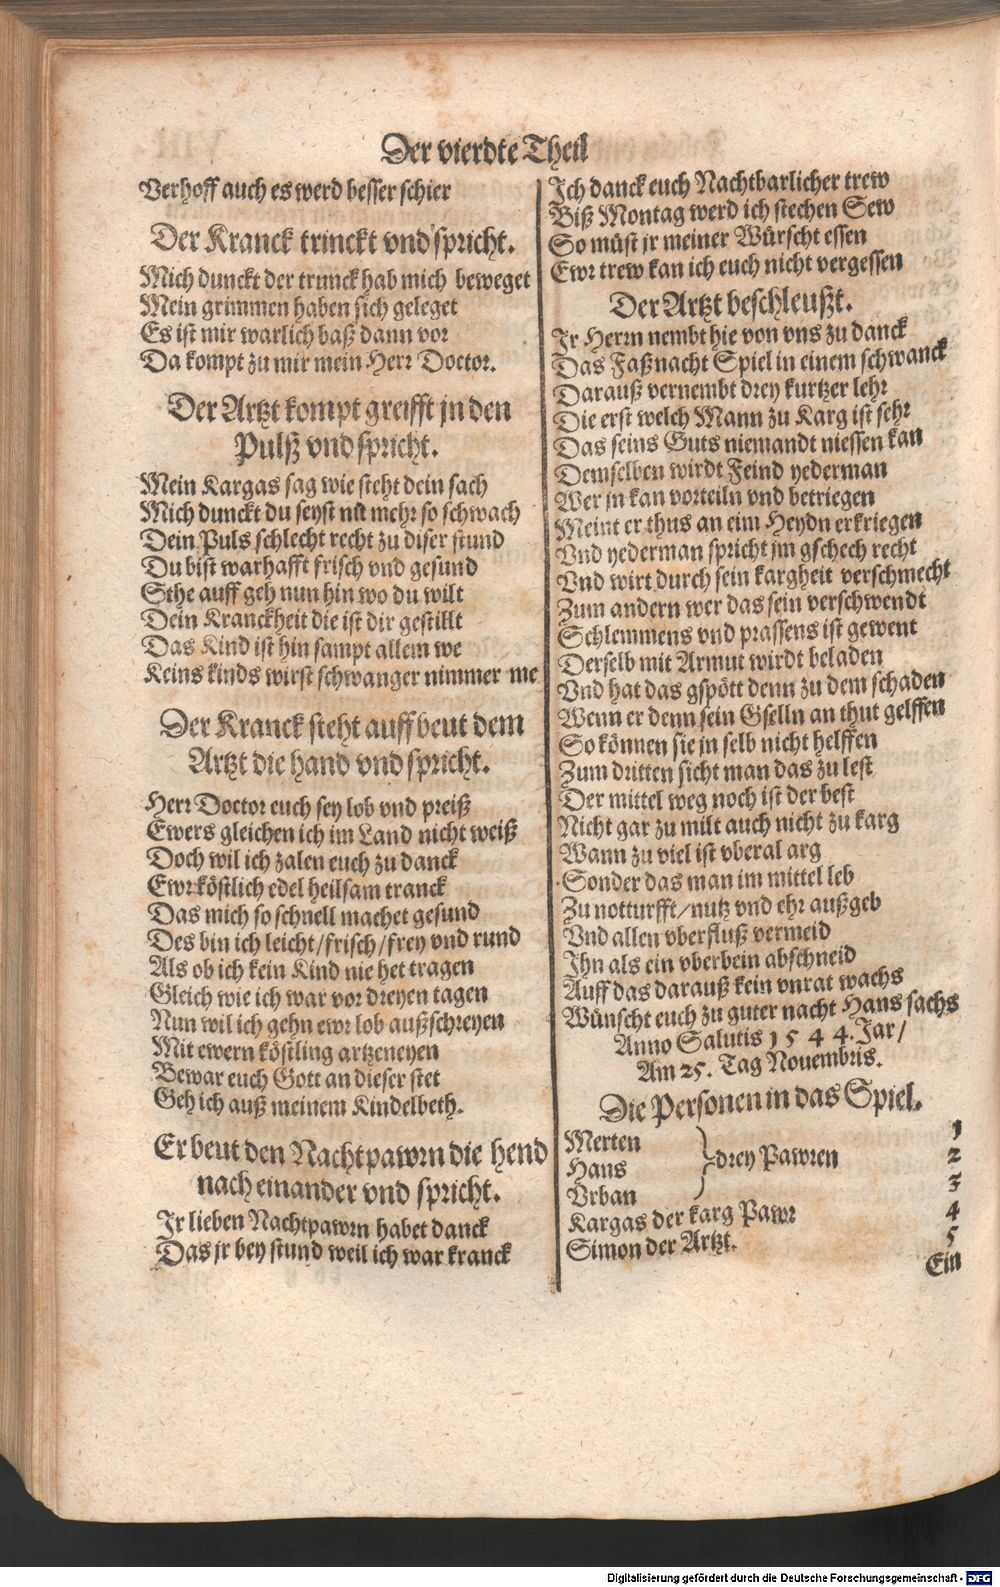 Der vierdte Theil
Verhoff auch es werd besser schier
Der Kranck trinckt vnd spricht.
Mich dunckt der trunck hab mich beweget
Mein grimmen haben sich geleget
Es ist mir warlich baß dann vor
Da kompt zu mir mein Herr Doctor.
Der Artzt kompt greifft jn den
Pulß vnd spricht.
Mein Kargas sag wie steht dein sach
Mich dunckt du seyst nū mehr so schwach
Dein Puls schlecht recht zu diser stund
Du bist warhafft frisch vnd gesund
Sthe auff geh nun hin wo du wilt
Dein Kranckheit die ist dir gestillt
Das Kind ist hin sampt allem we
Keins kinds wirst schwanger nimmer me
Der Kranck steht auff beut dem
Artzt die hand vnd spricht.
Herr Doctor euch sey lob vnd preiß
Ewers gleichen ich im Land nicht weiß
Doch wil ich zalen euch zu danck
Ewr köstlich edel heilsam tranck
Das mich so schnell machet gesund
Des bin ich leicht/frisch/frey vnd rund
Als ob ich kein Kind nie het tragen
Gleich wie ich war vor dreyen tagen
Nun wil ich gehn ewr lob außschreyen
Mit ewern köstling artzeneyen
Bewar euch Gott an dieser stet
Geh ich auß meinem Kindelbeth.
Er beut den Nachtpawrn die hend
nach einander vnd spricht.
Jr lieben Nachtpawrn habet danck
Das jr bey stund weil ich war kranck
Ich danck euch Nachtbarlicher trew
Biß Montag werd ich stechen Sew
So müst jr meiner Würscht essen
Ewr trew kan ich euch nicht vergessen
Der Artzt beschleußt.
Jr Herrn nembt hie von vns zu danck
Das Faßnacht Spiel in einem schwanck
Darauß vernembt drey kurtzer lehr
Die erst welch Mann zu Karg ist sehr
Das seins Guts niemandt niessen kan
Demselben wirdt Feind yederman
Wer jn kan vorteiln vnd betriegen
Meint er thus an eim Heydn erkriegen
Vnd yederman spricht jm gschech recht
Vnd wirt durch sein kargheit verschmecht
Zum andern wer das sein verschwendt
Schlemmens vnd prassens ist gewent
Derselb mit Armut wirdt beladen
Vnd hat das gspött denn zu dem schaden
Wenn er denn sein Gselln an thut gelffen
So können sie jn selb nicht helffen
Zum dritten sicht man das zu lest
Der mittel weg noch ist der best
Nicht gar zu milt auch nicht zu karg
Wann zu viel ist vberal arg
Sonder das man im mittel leb
Zu notturfft/nutz vnd ehr außgeb
Vnd allen vberfluß vermeid
Ihn als ein vberbein abschneid
Auff das darauß kein vnrat wachs
Wünscht euch zu guter nacht Hans sachs
Anno Salutis 1544. Jar/
Am 25. Tag Nouembris.
Die Personen in das Spiel.
Merten 1
Hans drey Pawren 2
Vrban 3
Kargas der karg Pawr 4
Simon der Artzt. 5
Ein
Digitalisierung gefördert durch die Deutsche Forschungsgemeinschaft - DFG